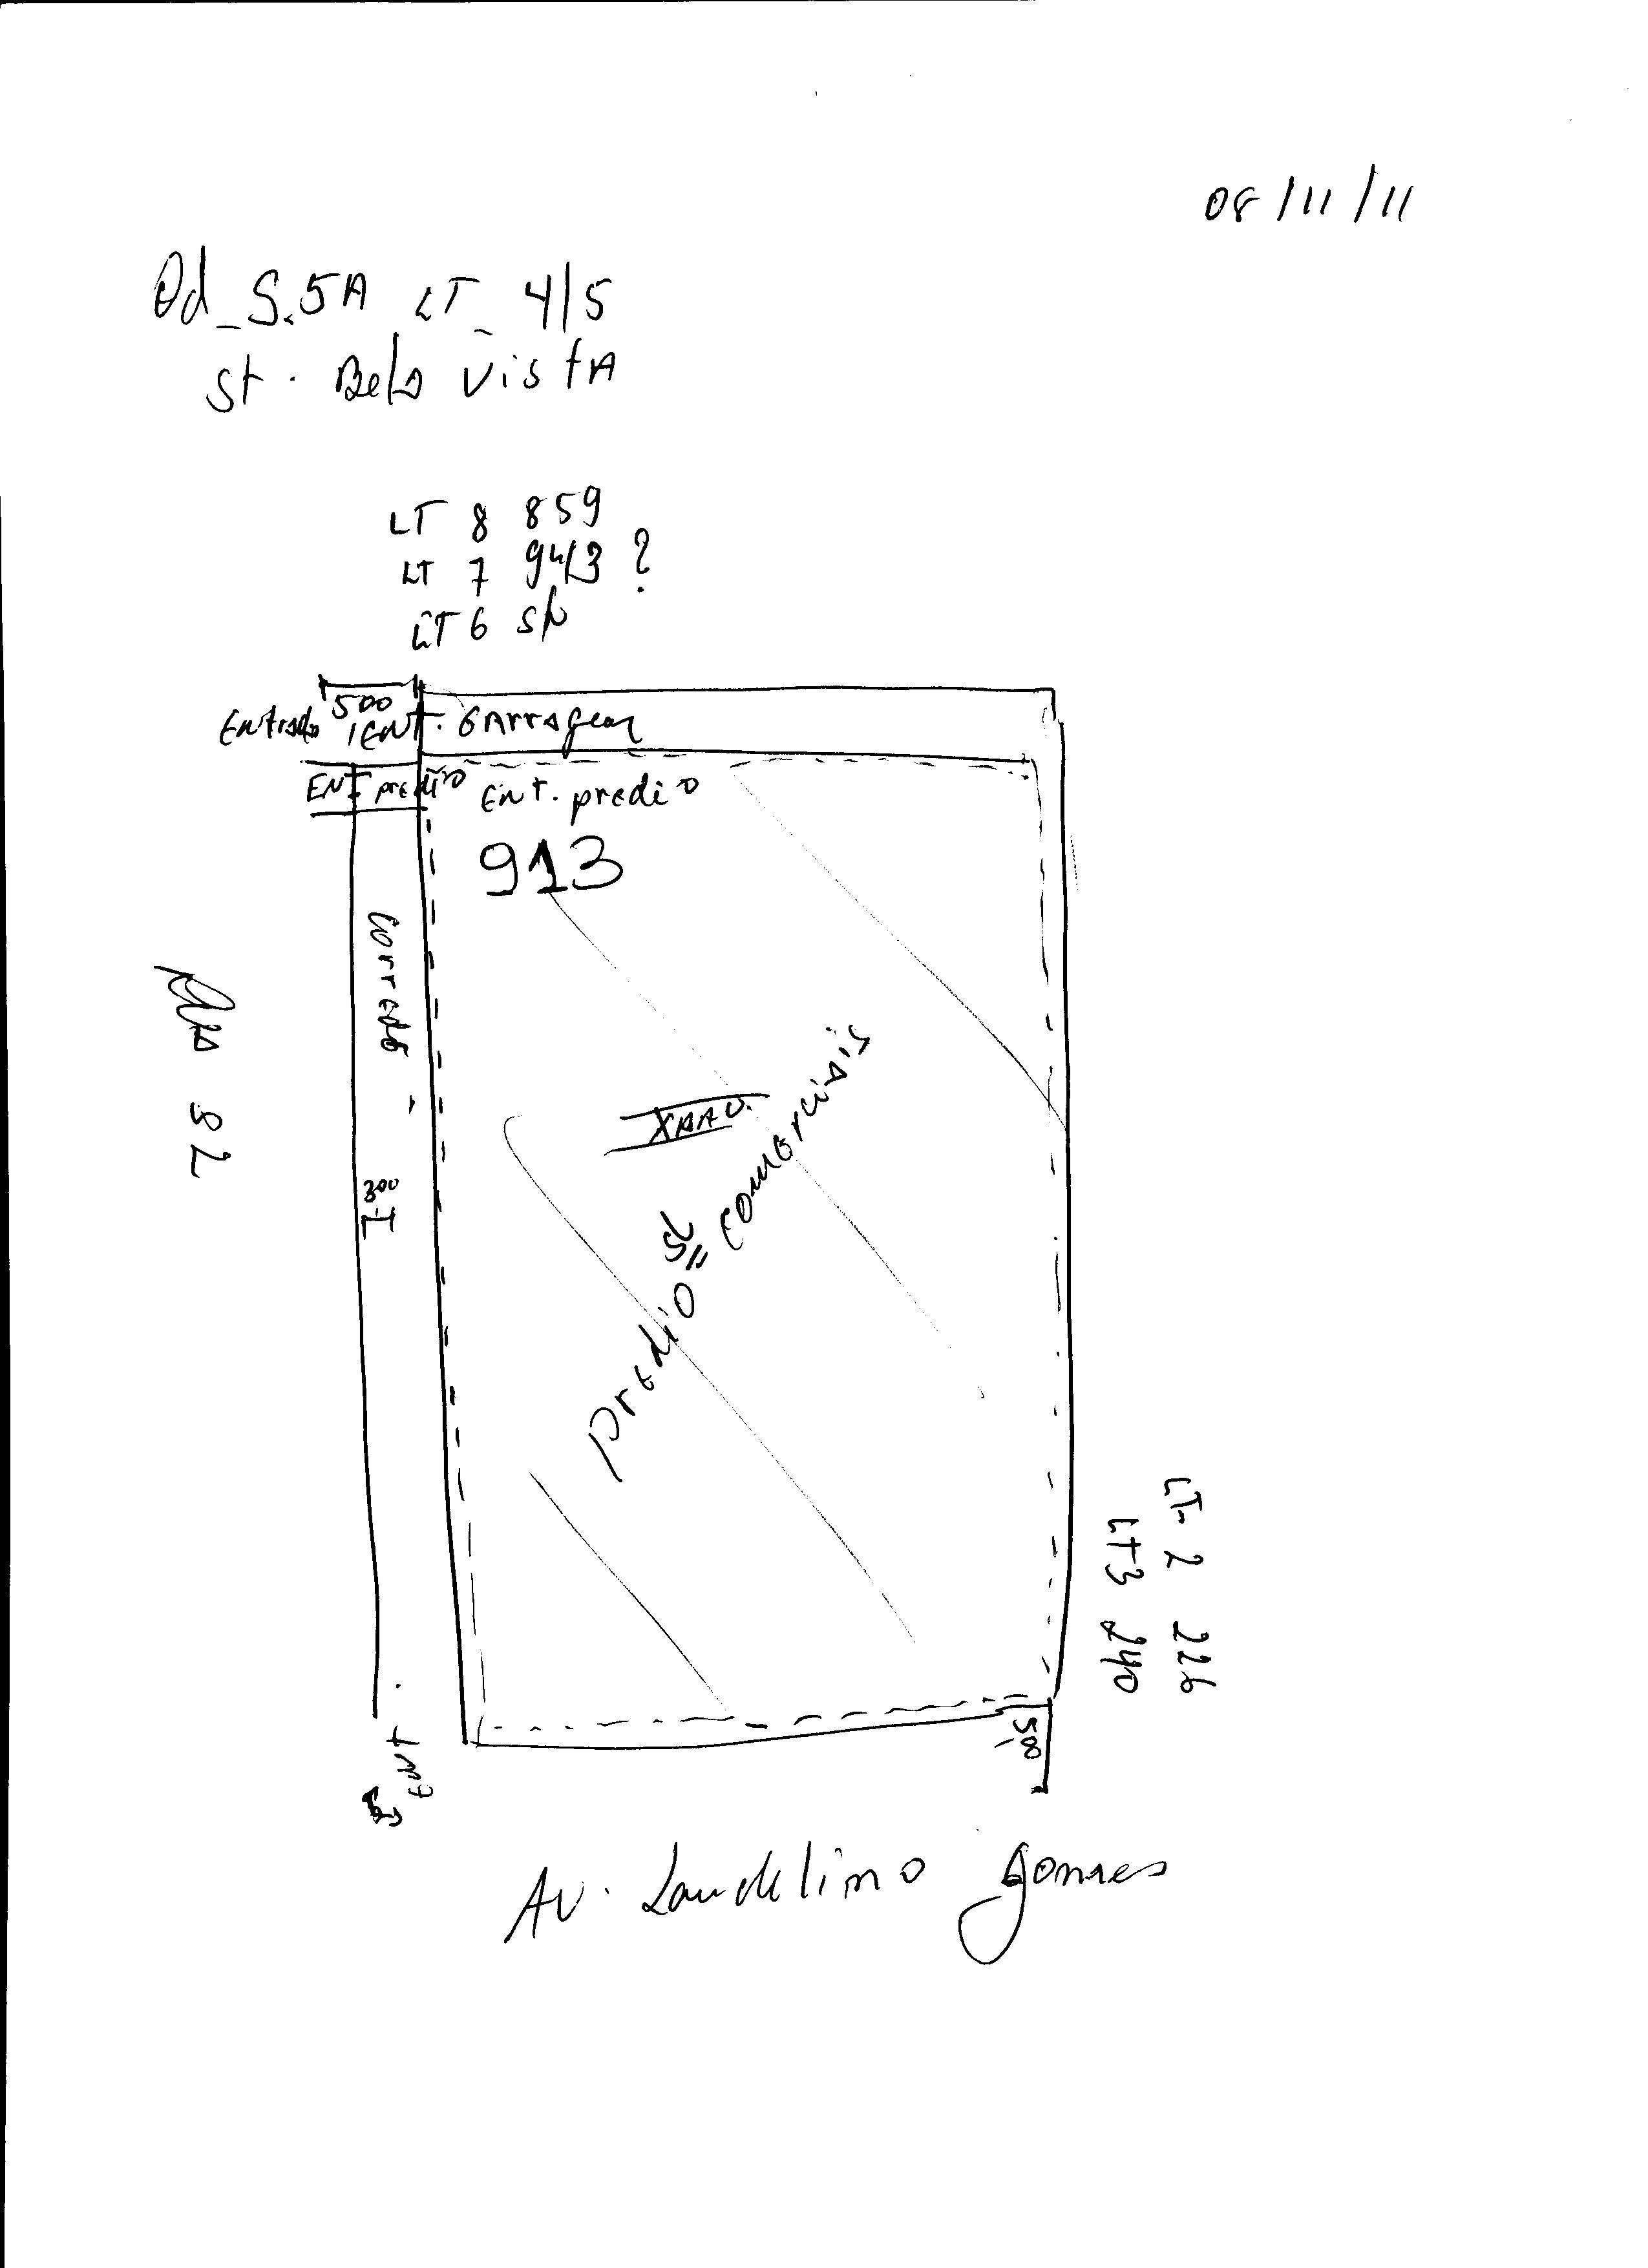 08/11/11
Qd_S.5A LT_ 4/5
St. Bela vistA
LT 8 859
LT 7 943 ?
LT 6 s/n
500
Entrada
ENT. GArragem
ENT predio
Ent. predio
913
corredo
300
Rua 82
predio
comerciais
LT- 2 226
LT3 240
500
ENT.
Av. Laudelino Gomes